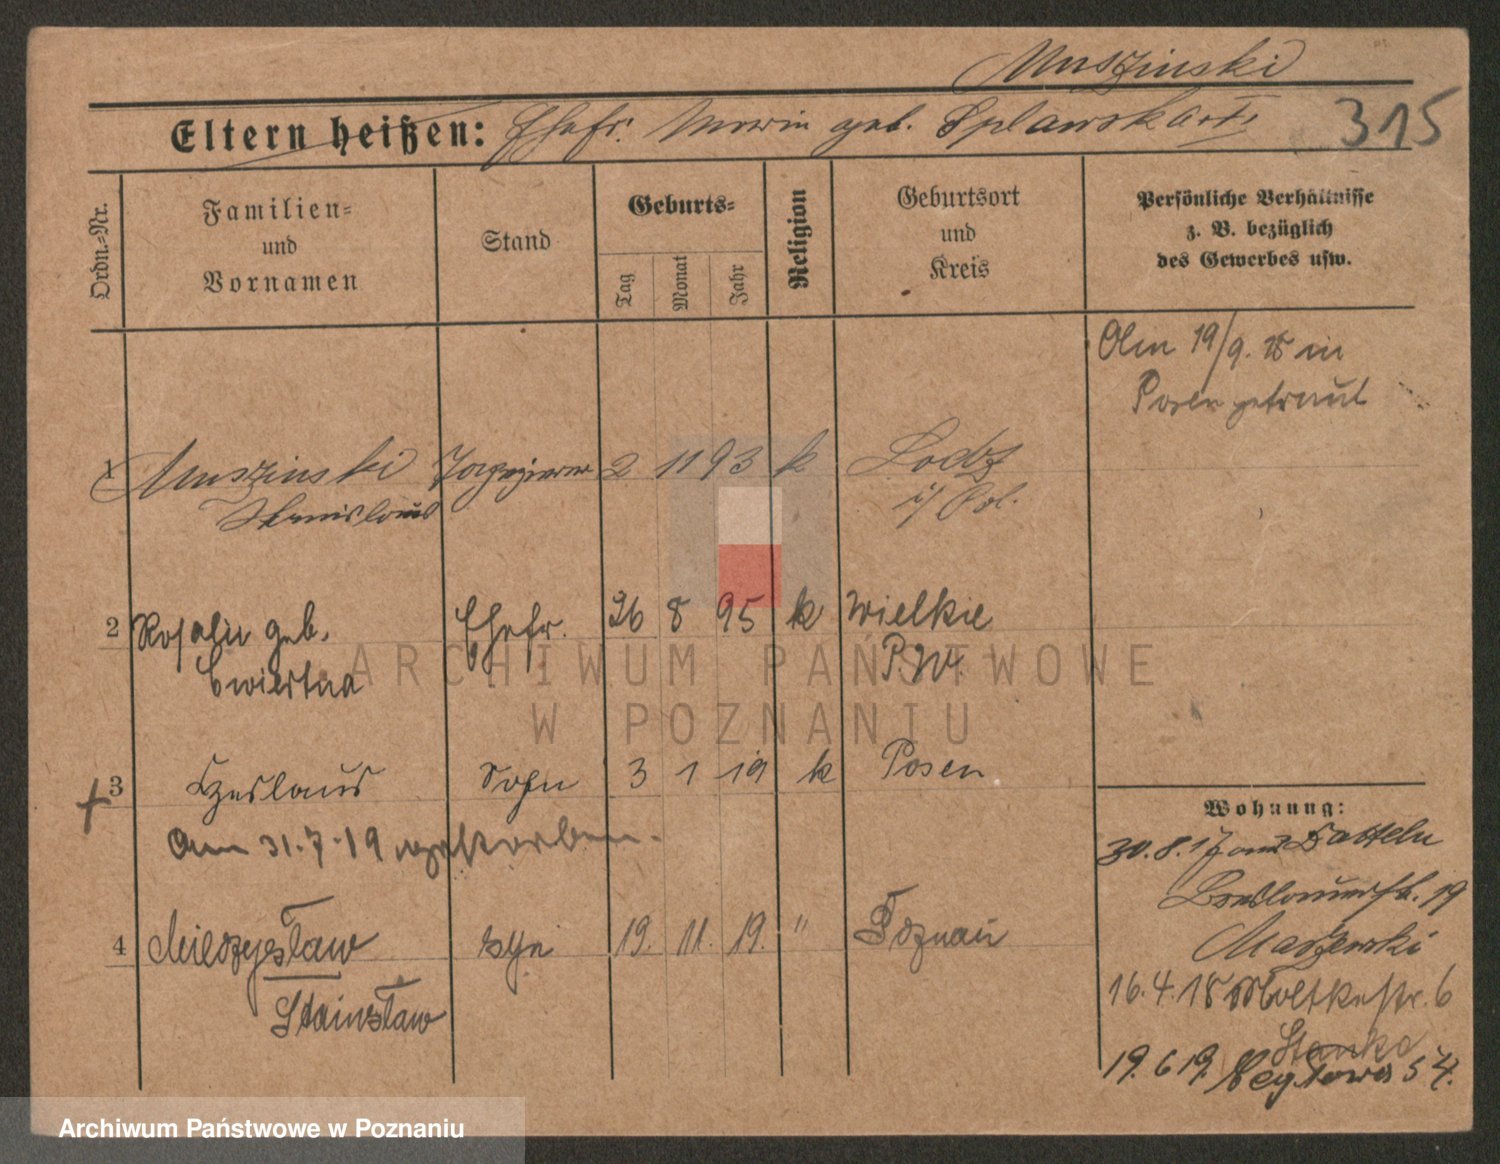 Muszinski
Eltern heißen: Ehefr. geb. Splawska
315
Ordn.=Nr.
Familien=
und
Vornamen
Stand
Geburts=
Tag
Monat
Jahr
Religion
Geburtsort
und
Kreis
Persönliche Verhältnisse
z. B. bezüglich
des Gewerbes usw.
Am 19/9. 18 in
Posen getraut
1 Muszinski Tapezierer 2 11 93 k Lodz
Stanislaus i/ Pol.
2 Rosalie geb. Ehefr. 26 8 95 k Wielkie
Cwiertna P.W.
3 Czeslaus Sohn 3 1 19 k Posen
Am 31.7.19 verstorben.
4 Mieczysław syn 19. 11. 19. " Poznań
Stainsław
Wohnung:
30.8.17 aus Datteln
Breslauerstr. 19
16.4.18 Moltkestr. 6
Stanko
19. 6 19.
ARCHIWUM PAŃSTWOWE
W POZNANIU
Archiwum Państwowe w Poznaniu